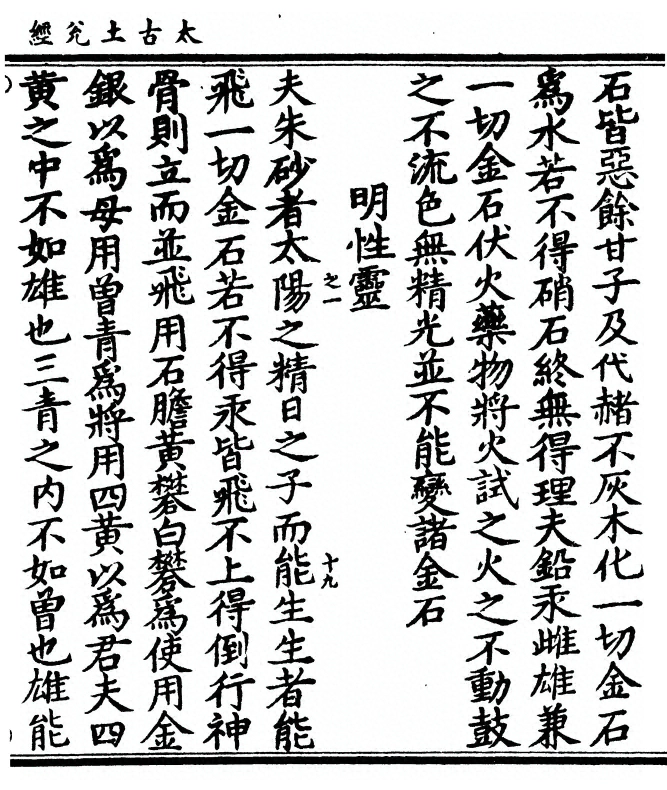 太古土兊經
石皆惡餘甘子及代赭不灰木化一切金石
爲水若不得硝石終無得理夫鉛汞雌雄兼
一切金石伏火藥物將火試之火之不動鼓
之不流色無精光並不能變諸金石
明性靈
之一
十九
夫朱砂者太陽之精日之子而能生生者能
飛一切金石若不得汞皆飛不上得倒行神
骨則立而並飛用石膽黃礬白礬爲使用金
銀以爲母用曾青爲將用四黃以爲君夫四
黃之中不如雄也三青之內不如曾也雄能